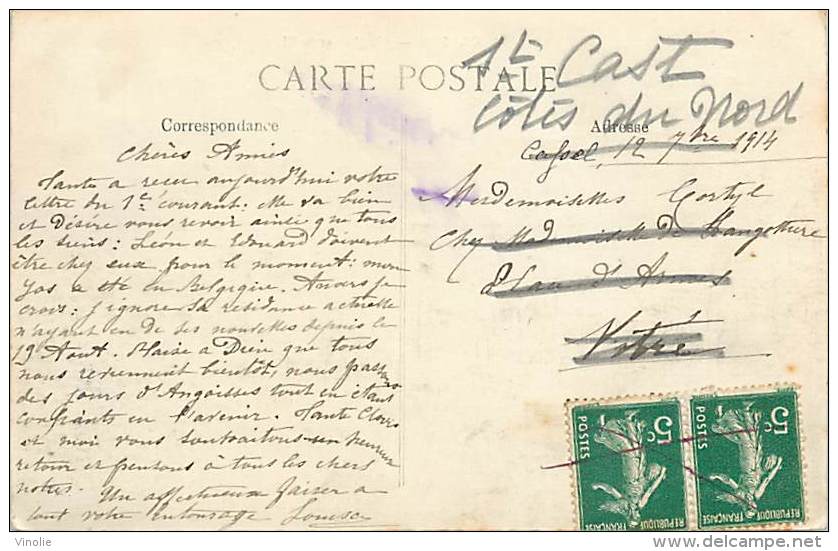 CARTE POSTALE
St Cast
Côtés du Nord
Correspondance
Adresse
Cassel, 12 7bre 1914
Chères Amies
Tante a reçu aujourd'hui votre
lettre du 1er courant. Elle va bien
et Désire vous revoir ainsi que tous
les siens : Léon et Edouard doivent
être chez eux pour le moment : mon
a été en Belgique. Anvers je
crois : j'ignore sa résidence actuelle
n'ayant eu de ses nouvelles depuis le
19 Aout. Plaise a Dieu que tous
nous reviennent bientôt, nous passons
des jours d'Angoisses tout en étant
confiants en l'avenir. Tante
et moi vous souhaitons un heureux
retour et pensons à tous les chers
notres. Un affectueux baiser a
tout votre entourage Louisa
Mesdemoiselles
Chez Mademoiselle de
Place d'Armes
Vitré
5c
POSTES
REPUBLIQUE FRANÇAISE
5c
POSTES
REPUBLIQUE FRANÇAISE
© Vinolie
http://www.delcampe.net